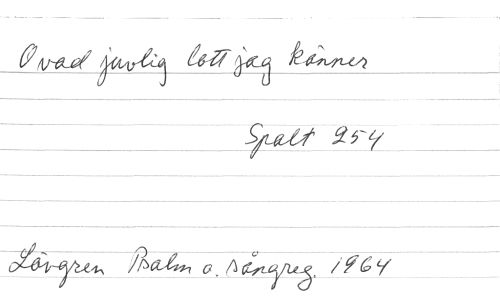 O vad juvlig lott jag känner
Spalt 254
Lövgren Psalm o. sångreg. 1964